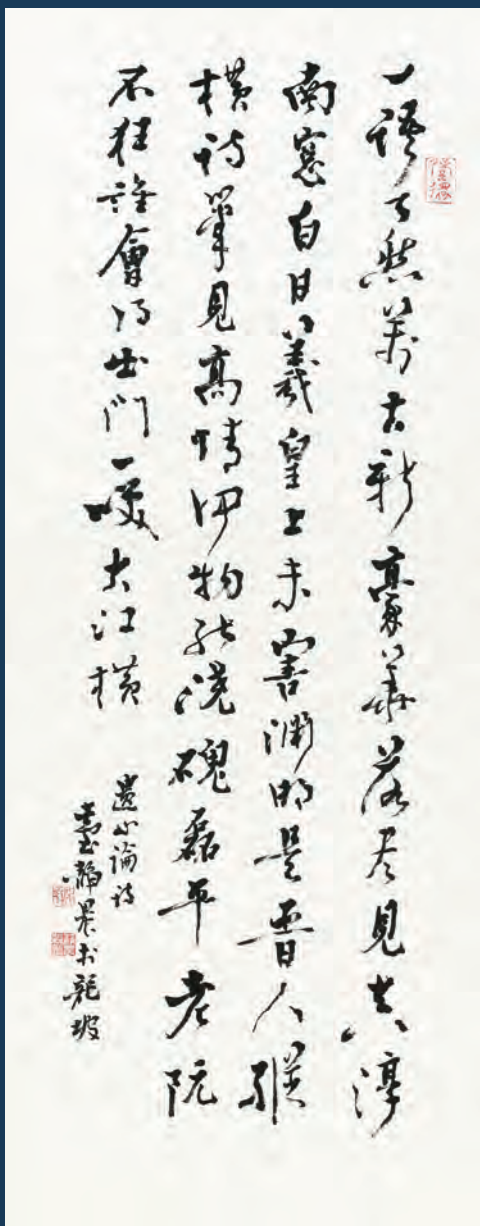 一語天然萬古新豪華落盡見真淳
南窓白日羲皇上未害淵明是晉人縱
橫詩筆見高情何物能澆磈磊平老阮
不狂誰會得出門一咲大江橫
遺山論詩
臺靜農於龍坡